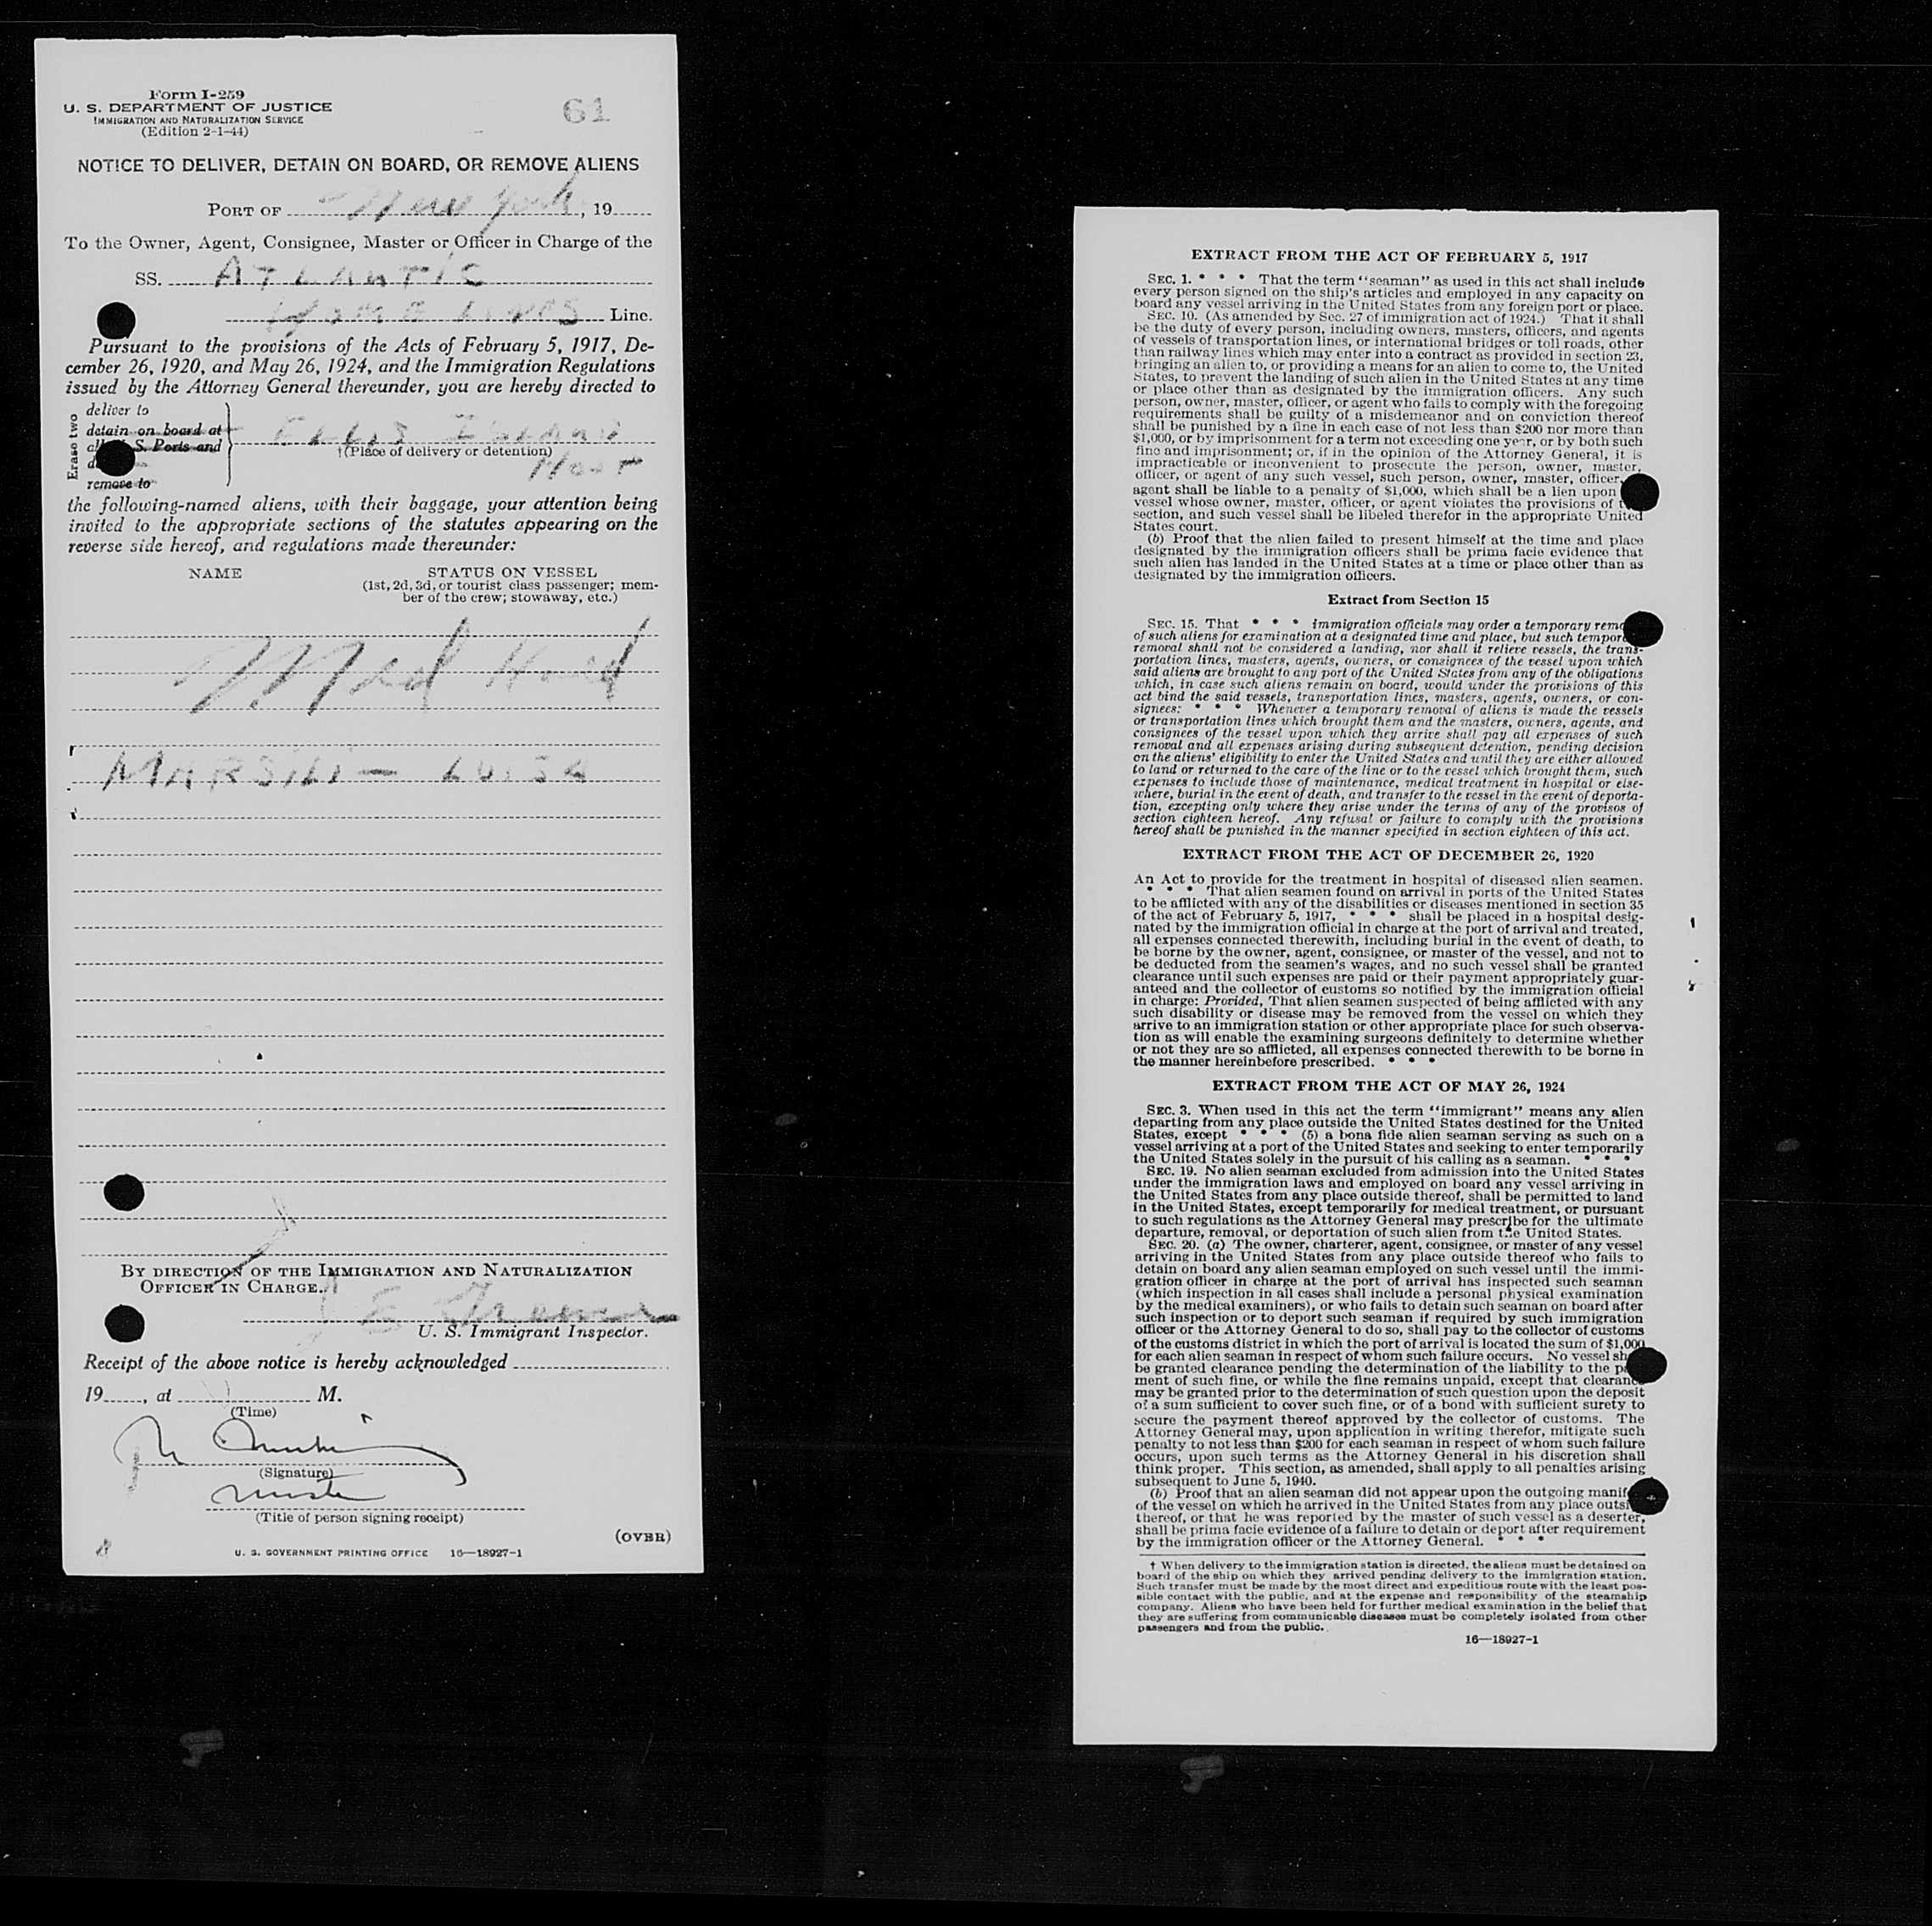 Form I-259
U. S. DEPARTMENT OF JUSTICE
IMMIGRATION AND NATURALIZATION SERVICE
(Edition 2-1-44)
61
NOTICE TO DELIVER, DETAIN ON BOARD, OR REMOVE ALIENS
PORT OF New York, 19
To the Owner, Agent, Consignee, Master or Officer in Charge of the
SS. ATLANTIC
HOME LINES Line.
Pursuant to the provisions of the Acts of February 5, 1917, De-
cember 26, 1920, and May 26, 1924, and the Immigration Regulations
issued by the Attorney General thereunder, you are hereby directed to
Erase two
deliver to
detain on board at
S. Ports and
remove to
ELLIS ISLAND
†(Place of delivery or detention)
the following-named aliens, with their baggage, your attention being
invited to the appropriate sections of the statutes appearing on the
reverse side hereof, and regulations made thereunder:
NAME
STATUS ON VESSEL
(1st, 2d, 3d, or tourist class passenger; mem-
ber of the crew; stowaway, etc.)
Med
MARSILI — LUISA
BY DIRECTION OF THE IMMIGRATION AND NATURALIZATION
OFFICER IN CHARGE.
U. S. Immigrant Inspector.
Receipt of the above notice is hereby acknowledged
19, at M.
(Time)
(Signature)
(Title of person signing receipt)
(OVER)
U. S. GOVERNMENT PRINTING OFFICE 16—18927-1
EXTRACT FROM THE ACT OF FEBRUARY 5, 1917
SEC. 1. * * * That the term "seaman" as used in this act shall include
every person signed on the ship's articles and employed in any capacity on
board any vessel arriving in the United States from any foreign port or place.
SEC. 10. (As amended by Sec. 27 of immigration act of 1924.) That it shall
be the duty of every person, including owners, masters, officers, and agents
of vessels of transportation lines, or international bridges or toll roads, other
than railway lines which may enter into a contract as provided in section 23,
bringing an alien to, or providing a means for an alien to come to, the United
States, to prevent the landing of such alien in the United States at any time
or place other than as designated by the immigration officers. Any such
person, owner, master, officer, or agent who fails to comply with the foregoing
requirements shall be guilty of a misdemeanor and on conviction thereof
shall be punished by a fine in each case of not less than $200 nor more than
$1,000, or by imprisonment for a term not exceeding one year, or by both such
fine and imprisonment; or, if in the opinion of the Attorney General, it is
impracticable or inconvenient to prosecute the person, owner, master,
officer, or agent of any such vessel, such person, owner, master, officer,
agent shall be liable to a penalty of $1,000, which shall be a lien upon
vessel whose owner, master, officer, or agent violates the provisions of
section, and such vessel shall be libeled therefor in the appropriate United
States court.
(b) Proof that the alien failed to present himself at the time and place
designated by the immigration officers shall be prima facie evidence that
such alien has landed in the United States at a time or place other than as
designated by the immigration officers.
Extract from Section 15
SEC. 15. That * * * immigration officials may order a temporary
of such aliens for examination at a designated time and place, but such
removal shall not be considered a landing, nor shall it relieve vessels, the trans-
portation lines, masters, agents, owners, or consignees of the vessel upon which
said aliens are brought to any port of the United States from any of the obligations
which, in case such aliens remain on board, would under the provisions of this
act bind the said vessels, transportation lines, masters, agents, owners, or con-
signees: * * * Whenever a temporary removal of aliens is made the vessels
or transportation lines which brought them and the masters, owners, agents, and
consignees of the vessel upon which they arrive shall pay all expenses of such
removal and all expenses arising during subsequent detention, pending decision
on the aliens' eligibility to enter the United States and until they are either allowed
to land or returned to the care of the line or to the vessel which brought them, such
expenses to include those of maintenance, medical treatment in hospital or else-
where, burial in the event of death, and transfer to the vessel in the event of deporta-
tion, excepting only where they arise under the terms of any of the provisos of
section eighteen hereof. Any refusal or failure to comply with the provisions
hereof shall be punished in the manner specified in section eighteen of this act.
EXTRACT FROM THE ACT OF DECEMBER 26, 1920
An Act to provide for the treatment in hospital of diseased alien seamen.
* * * That alien seamen found on arrival in ports of the United States
to be afflicted with any of the disabilities or diseases mentioned in section 35
of the act of February 5, 1917, * * * shall be placed in a hospital desig-
nated by the immigration official in charge at the port of arrival and treated,
all expenses connected therewith, including burial in the event of death, to
be borne by the owner, agent, consignee, or master of the vessel, and not to
be deducted from the seamen's wages, and no such vessel shall be granted
clearance until such expenses are paid or their payment appropriately guar-
anteed and the collector of customs so notified by the immigration official
in charge: Provided, That alien seamen suspected of being afflicted with any
such disability or disease may be removed from the vessel on which they
arrive to an immigration station or other appropriate place for such observa-
tion as will enable the examining surgeons definitely to determine whether
or not they are so afflicted, all expenses connected therewith to be borne in
the manner hereinbefore prescribed. * * *
EXTRACT FROM THE ACT OF MAY 26, 1924
SEC. 3. When used in this act the term "immigrant" means any alien
departing from any place outside the United States destined for the United
States, except * * * (5) a bona fide alien seaman serving as such on a
vessel arriving at a port of the United States and seeking to enter temporarily
the United States solely in the pursuit of his calling as a seaman. * * *
SEC. 19. No alien seaman excluded from admission into the United States
under the immigration laws and employed on board any vessel arriving in
the United States from any place outside thereof, shall be permitted to land
in the United States, except temporarily for medical treatment, or pursuant
to such regulations as the Attorney General may prescribe for the ultimate
departure, removal, or deportation of such alien from the United States.
SEC. 20. (a) The owner, charterer, agent, consignee, or master of any vessel
arriving in the United States from any place outside thereof who fails to
detain on board any alien seaman employed on such vessel until the immi-
gration officer in charge at the port of arrival has inspected such seaman
(which inspection in all cases shall include a personal physical examination
by the medical examiners), or who fails to detain such seaman on board after
such inspection or to deport such seaman if required by such immigration
officer or the Attorney General to do so, shall pay to the collector of customs
of the customs district in which the port of arrival is located the sum of $1,000
for each alien seaman in respect of whom such failure occurs. No vessel
be granted clearance pending the determination of the liability to the
ment of such fine, or while the fine remains unpaid, except that clearance
may be granted prior to the determination of such question upon the deposit
of a sum sufficient to cover such fine, or of a bond with sufficient surety to
secure the payment thereof approved by the collector of customs. The
Attorney General may, upon application in writing therefor, mitigate such
penalty to not less than $200 for each seaman in respect of whom such failure
occurs, upon such terms as the Attorney General in his discretion shall
think proper. This section, as amended, shall apply to all penalties arising
subsequent to June 5, 1940.
(b) Proof that an alien seaman did not appear upon the outgoing
of the vessel on which he arrived in the United States from any place
thereof, or that he was reported by the master of such vessel as a deserter,
shall be prima facie evidence of a failure to detain or deport after requirement
by the immigration officer or the Attorney General. * * *
† When delivery to the immigration station is directed, the aliens must be detained on
board of the ship on which they arrived pending delivery to the immigration station.
Such transfer must be made by the most direct and expeditious route with the least pos-
sible contact with the public, and at the expense and responsibility of the steamship
company. Aliens who have been held for further medical examination in the belief that
they are suffering from communicable diseases must be completely isolated from other
passengers and from the public.
16—18927-1